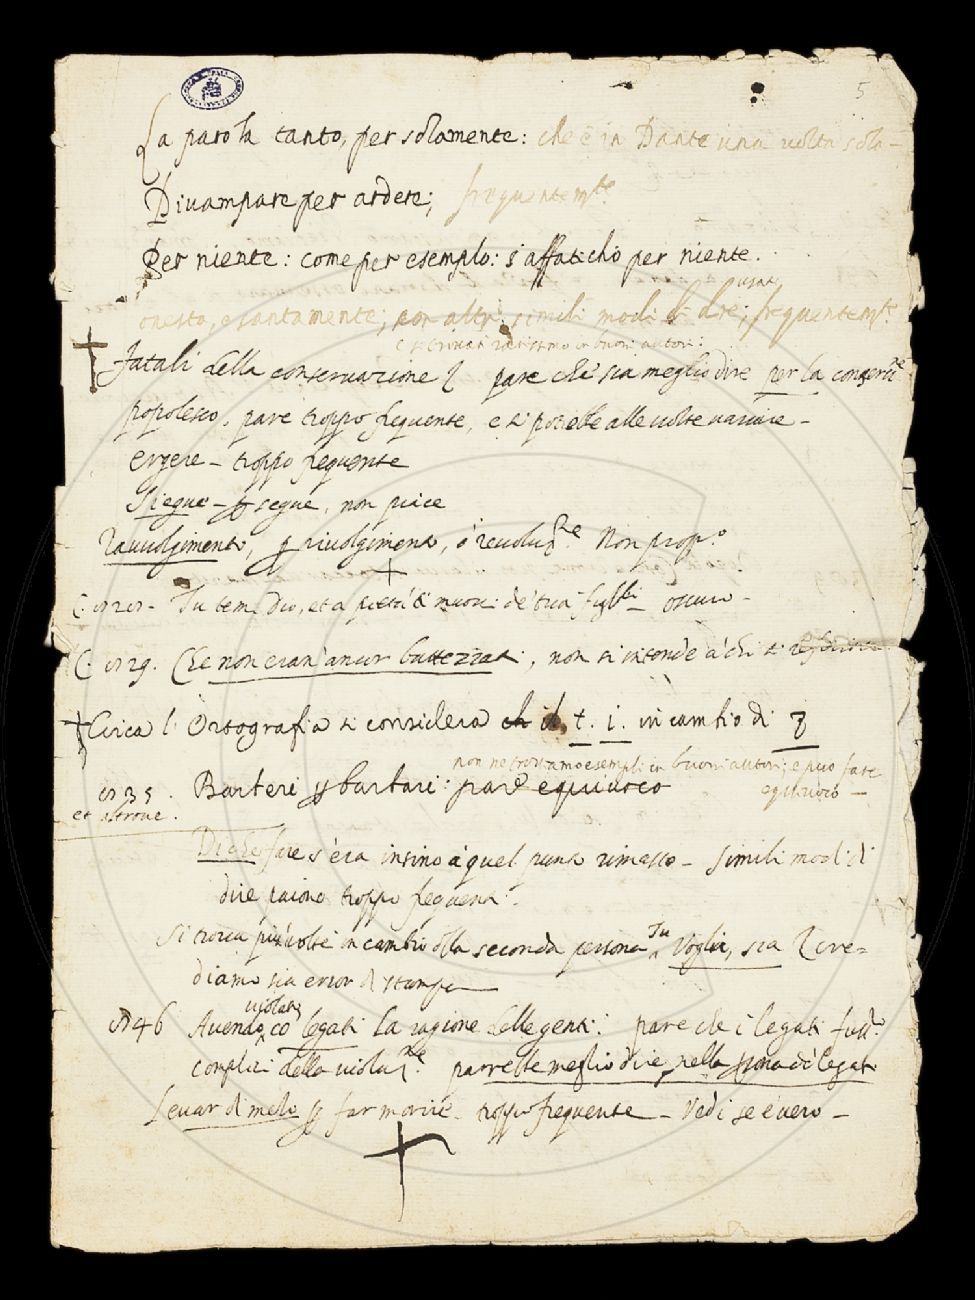 5
La parola tanto, per solamente: che è in Dante una volta sola -
Divampare per ardere; frequentem.te
Per niente: come per esempio: s'affatichò per niente.
usati
onesta, e santamente; con altri simili modi di dire; frequentem.te
e si trovati rarissimo in buoni autori:
Fatali della conservazione pare che sia meglio dire per la conserv.ne
popolesco, pare troppo frequente, e si potebbe alle volte variare -
ergere - troppo frequente
Siegue - segue, non piace
Ravvolgimenti, rivolgimenti, ò revoluz.ne Non prop.o
Tu tem. Dio, et a pietà ti muovi de' tua figli - oscuro -
C. 29. Che non eran' ancor battezzati, non si intende à chi si
Circa l'Ortografia si considera t. i. in cambio di z
non ne troviamo esempli in buoni autori; e può fare
35. Barberi barbari: pare equivoco equivoco -
et altrove.
Di che fare s'era insino à quel punto rimasto - Simili modi di
dire paiono troppo frequenti.
Si trova più volte in cambio della seconda persona Tu Voglia, sia cre=
diamo sia error di stampa
violata
46 Avendo co' legati la ragione delle genti: pare che i legati fuss.o
complici della violaz.ne parrebbe meglio dire, nella p.sona de' legati
Levar di mezo far morire - troppo frequente - Vedi se è vero -